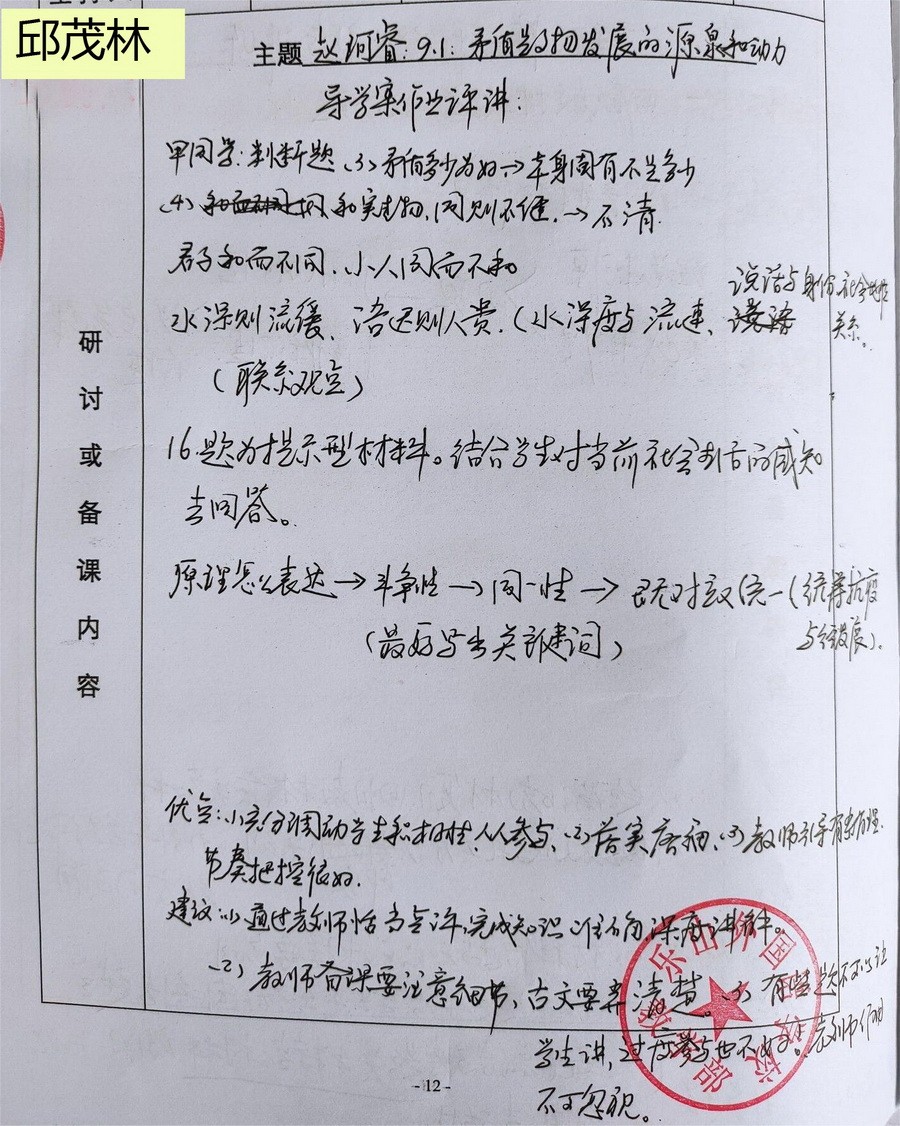 邱茂林
主题 赵珂睿:9.1:矛盾是事物发展的源泉和动力
导学案作业评讲:
甲同学:判断题(3)矛盾多少为好→本身固有不是多少
(4) 和实生物,同则不继.→不清.
君子和而不同.小人同而不和
水深则流缓、语迟则人贵.(水深度与流速、
说话与身份、社会地位
关系。
(联系观点)
16.题为提示型材料。结合学生对当前社会生活的感知
去回答。
原理怎么表达→斗争性→同一性→既对立又统一(统筹抗疫
与经发展).
(最好写出关键词)
研讨或备课内容
优点:(1)充分调动学生积极性,人人参与、(2)落实落细、(3)教师引导有条有理.
节奏把控很好.
建议:(1)通过教师恰当点评,完成知识 的深度讲解。
(2)教师备课要注意细节、古文要弄清楚。(3)有些题不可以让
学生讲,过度参与也不好。 教师作用
不可忽视。
- 12 -